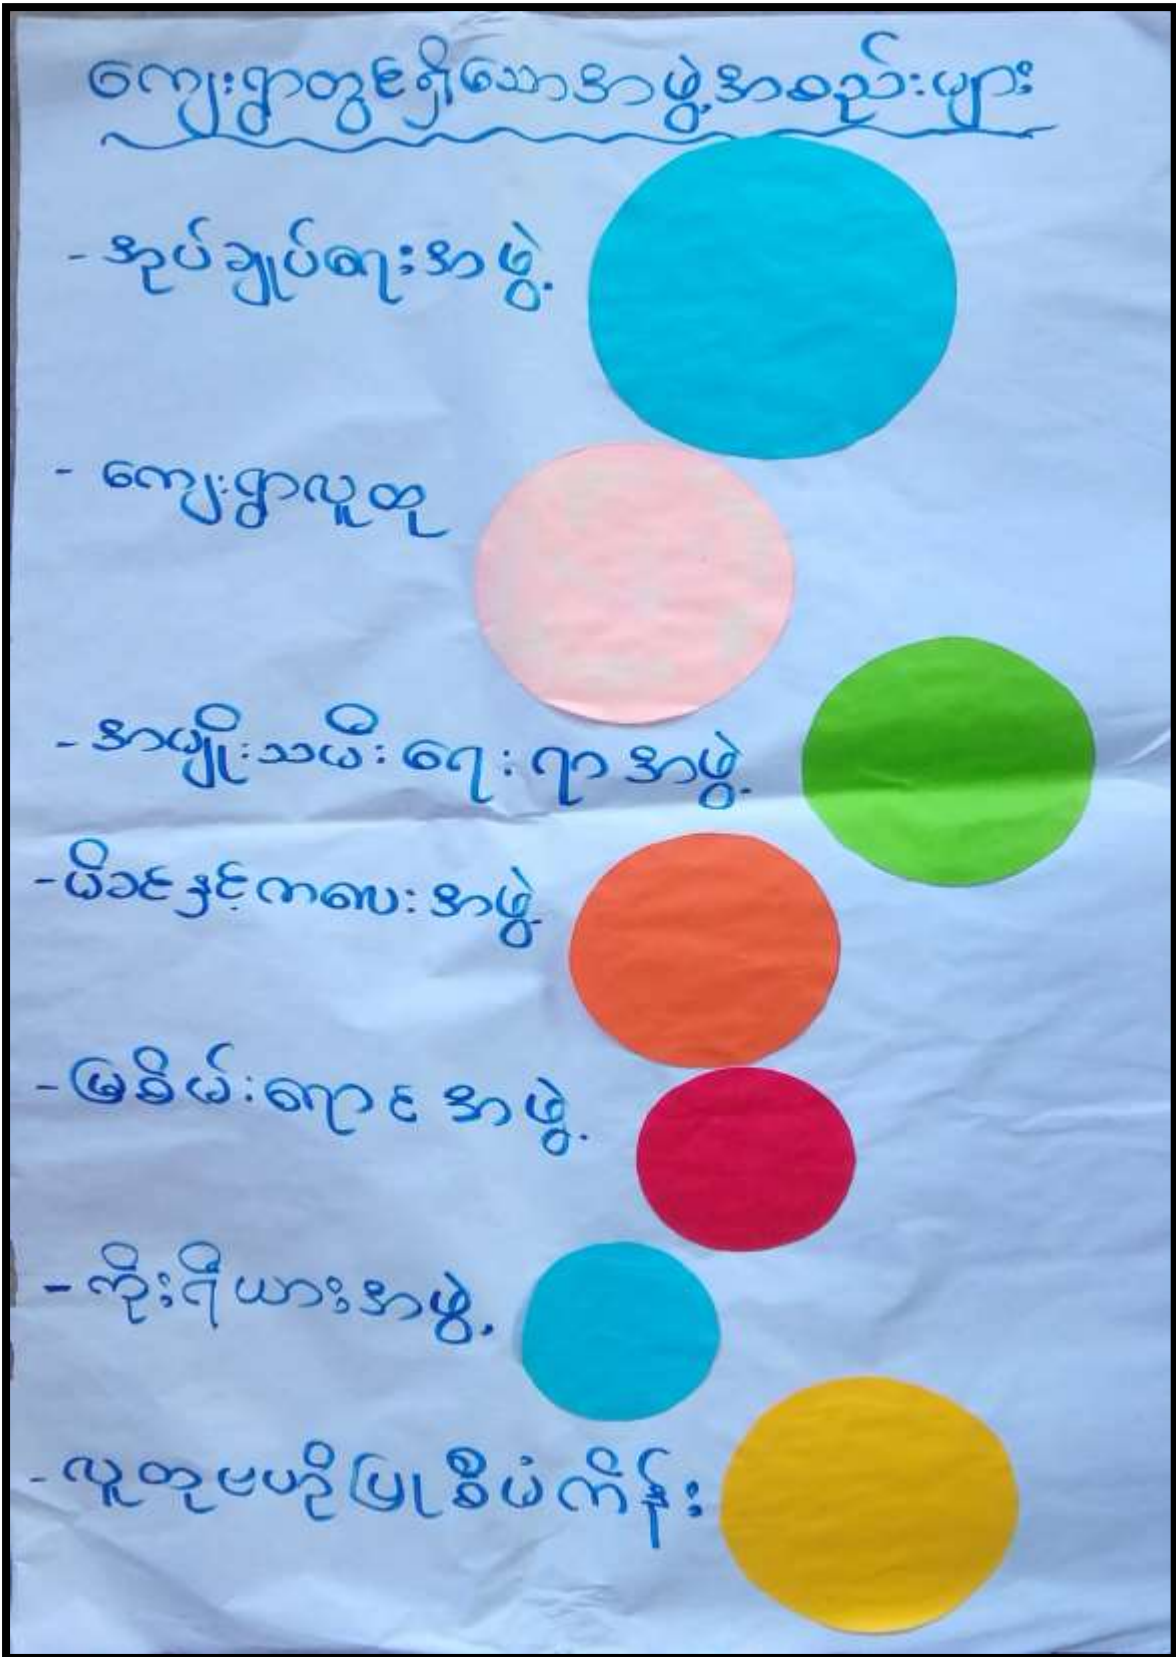 ကျေးရွာတွင်ရှိသောအဖွဲ့အစည်းများ
- အုပ်ချုပ်ရေးအဖွဲ့
- ကျေးရွာလူထု
- အမျိုးသမီးရေးရာအဖွဲ့
- မိခင်နှင့်ကလေးအဖွဲ့
- မြစိမ်းရောင်အဖွဲ့
- ကိုးရီယားအဖွဲ့
- လူထုဗဟိုပြုစီမံကိန်း